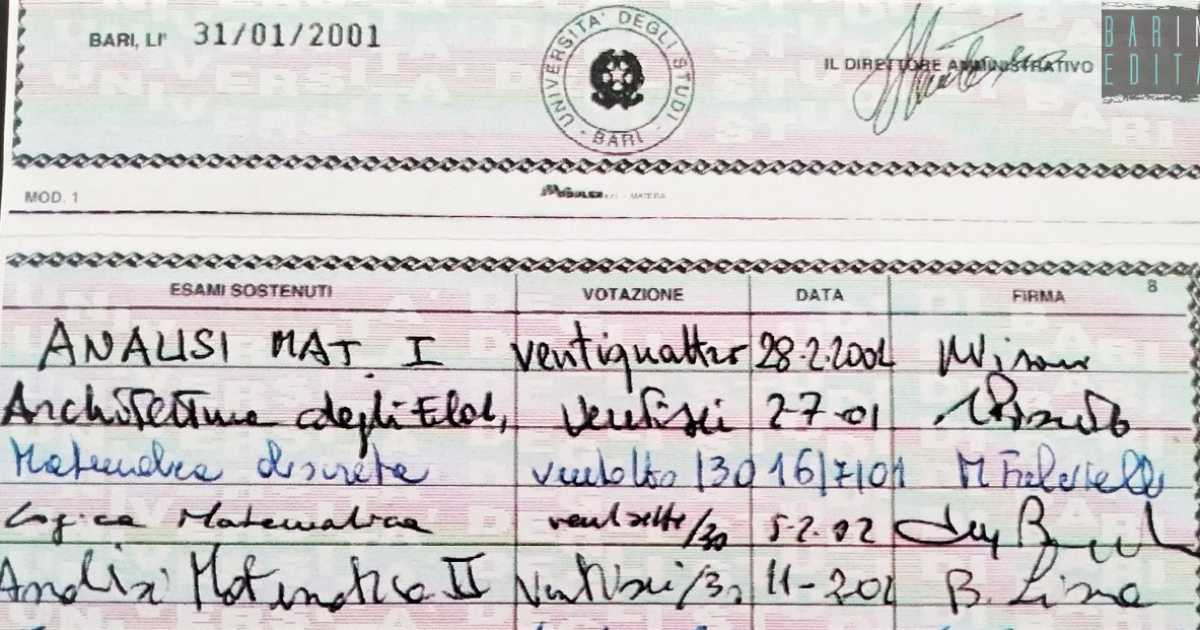 BARI, LI' 31/01/2001
UNIVERSITA' DEGLI STUDI
- BARI -
IL DIRETTORE AMMINISTRATIVO
BARIN
EDITA
MOD. 1
MATERA
ESAMI SOSTENUTI VOTAZIONE DATA FIRMA 8
ANALISI MAT I ventiquattro 28.2.2001
Architettura degli Elab, ventisei 2-7-01
Matematica discreta ventotto/30 16/7/01
Logica Matematica ventisette/30 5-2.02
Analisi Matematica II Ventisei/30 11-201 B. Lisena